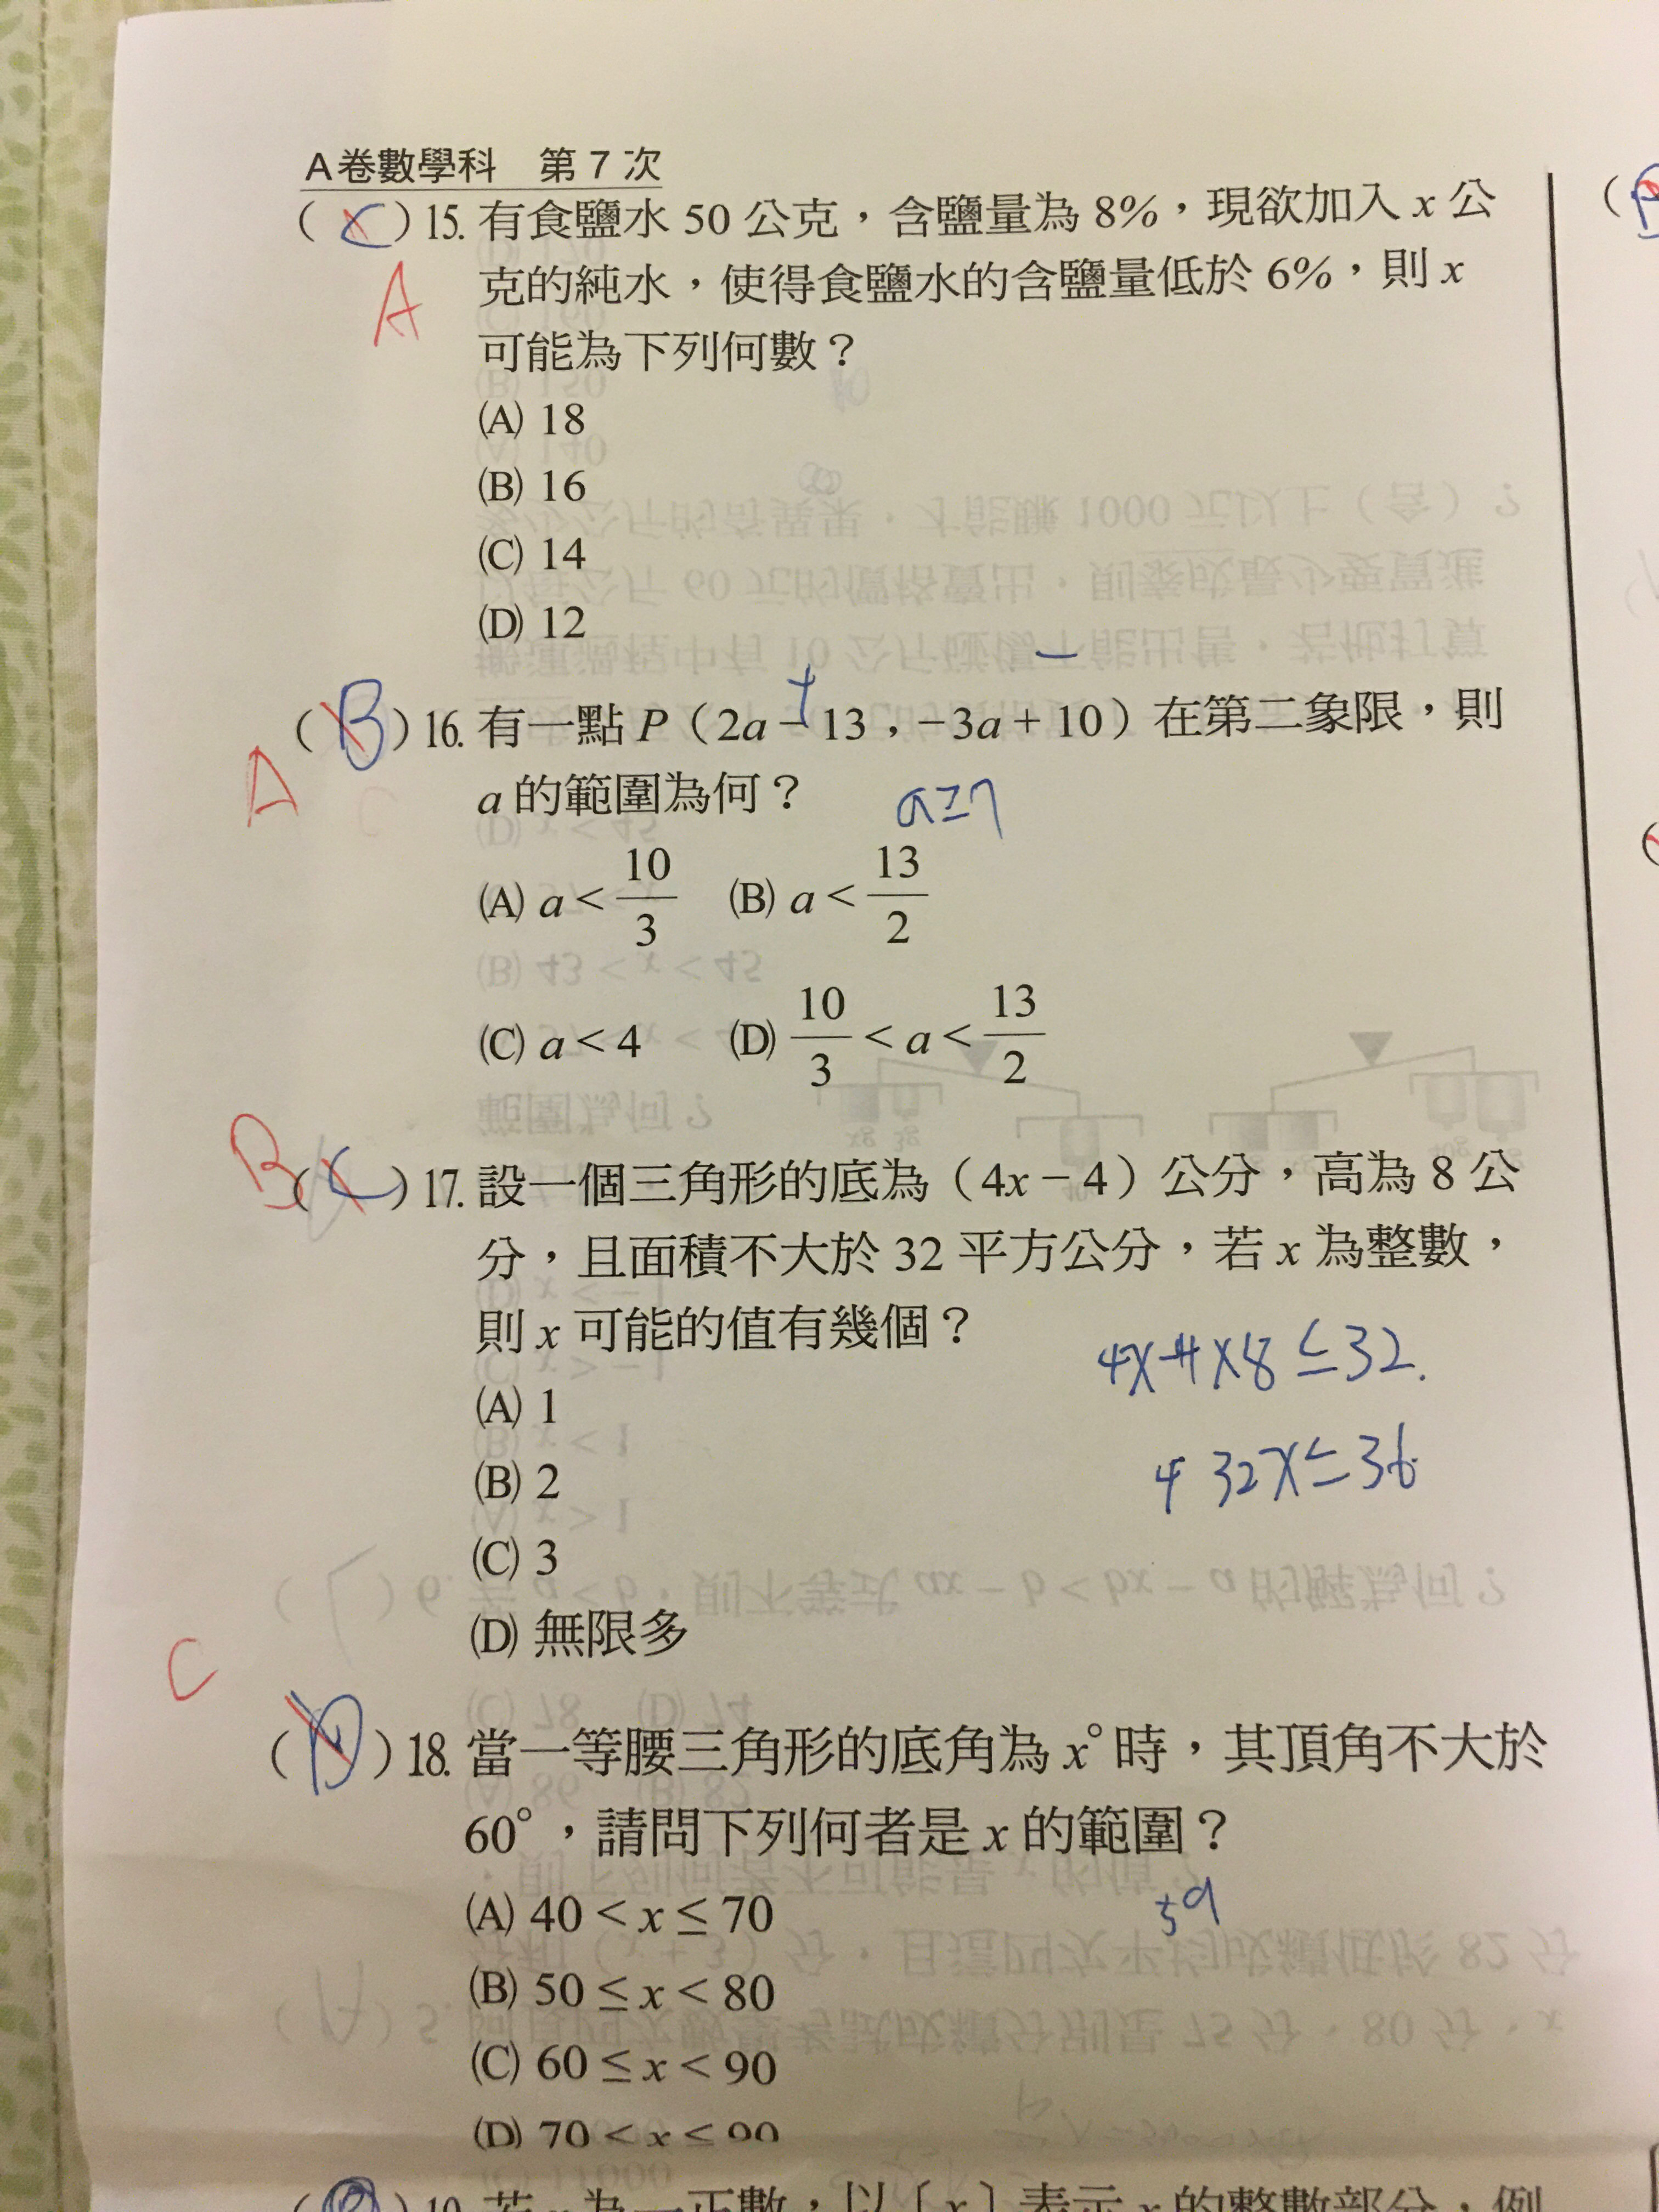 A卷數學科 第7次
(C)15. 有食鹽水 50 公克，含鹽量為 8%，現欲加入 x 公
A
克的純水，使得食鹽水的含鹽量低於 6%，則 x
可能為下列何數？
(A) 18
(B) 16
(C) 14
(D) 12
(B)16. 有一點 P（2a－13，－3a＋10）在第二象限，則
A
a 的範圍為何？
(A) a < 10/3 (B) a < 13/2
(C) a < 4 (D) 10/3 < a < 13/2
B
(C)17. 設一個三角形的底為（4x－4）公分，高為 8 公
分，且面積不大於 32 平方公分，若 x 為整數，
則 x 可能的值有幾個？
4x-4×8≤32.
(A) 1
32x≤36
(B) 2
(C) 3
(D) 無限多
C
(D)18. 當一等腰三角形的底角為 x° 時，其頂角不大於
60°，請問下列何者是 x 的範圍？
(A) 40 < x ≤ 70
(B) 50 ≤ x < 80
(C) 60 ≤ x < 90
(D) 70 < x ≤ 90